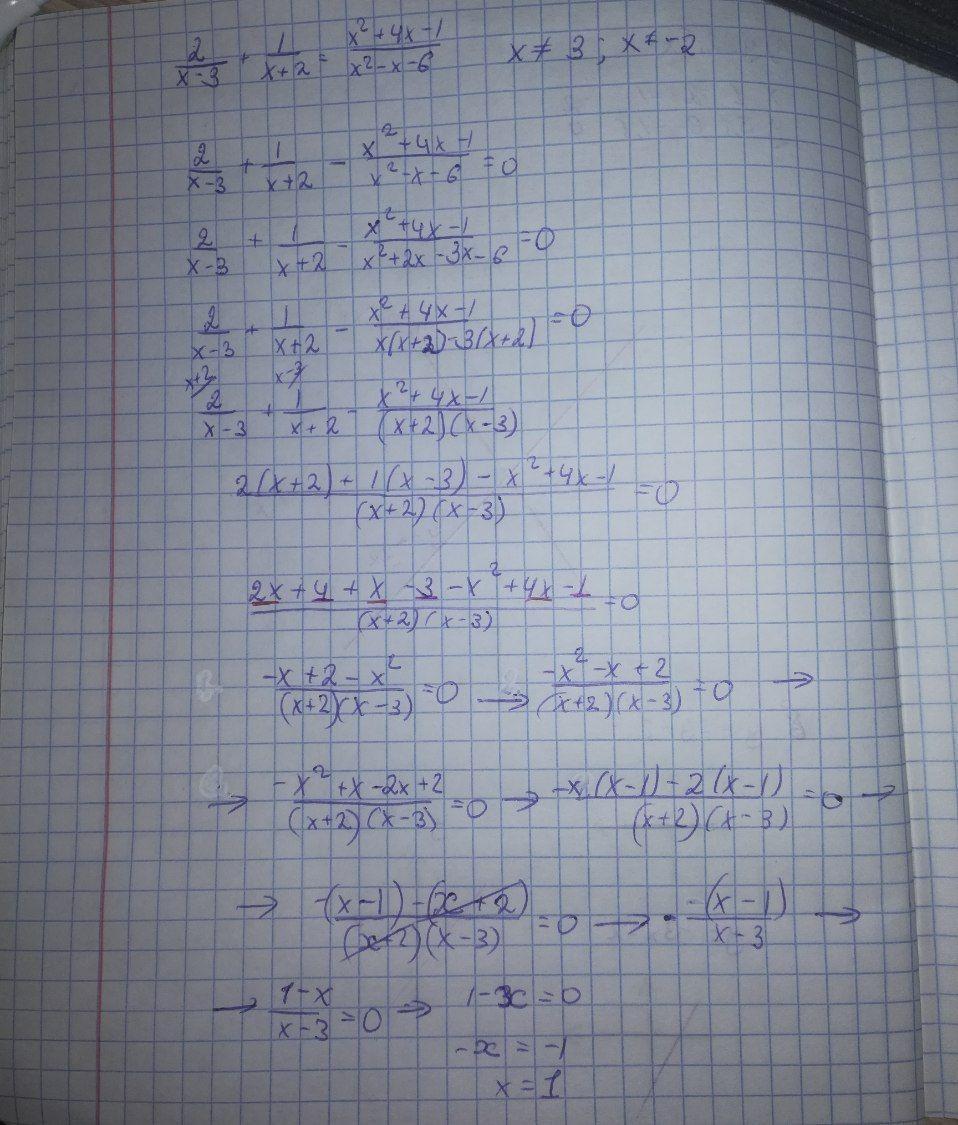 2/(x-3) + 1/(x+2) = (x²+4x-1)/(x²-x-6) x ≠ 3 ; x ≠ -2
2/(x-3) + 1/(x+2) - (x²+4x-1)/(x²-x-6) = 0
2/(x-3) + 1/(x+2) - (x²+4x-1)/(x²+2x-3x-6) = 0
2/(x-3) + 1/(x+2) - (x²+4x-1)/(x(x+2)-3(x+2)) = 0
x+2 x-3
2/(x-3) + 1/(x+2) - (x²+4x-1)/((x+2)(x-3))
(2(x+2) + 1(x-3) - x²+4x-1)/((x+2)(x-3)) = 0
(2x+4+x-3-x²+4x-1)/((x+2)(x-3)) = 0
(-x+2-x²)/((x+2)(x-3)) = 0 → (-x²-x+2)/((x+2)(x-3)) = 0 →
→ (-x²+x-2x+2)/((x+2)(x-3)) = 0 → (-x(x-1)-2(x-1))/((x+2)(x-3)) = 0 →
→ (-(x-1)-(x+2))/((x+2)(x-3)) = 0 → -(x-1)/(x-3) →
→ (1-x)/(x-3) = 0 → 1-x = 0
-x = -1
x = 1